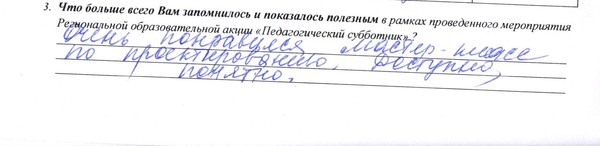 3. Что больше всего Вам запомнилось и показалось полезным в рамках проведенного мероприятия
Региональной образовательной акции «Педагогический субботник» ?
Очень понравился мастер-класс
по проектированию. Доступно,
понятно.